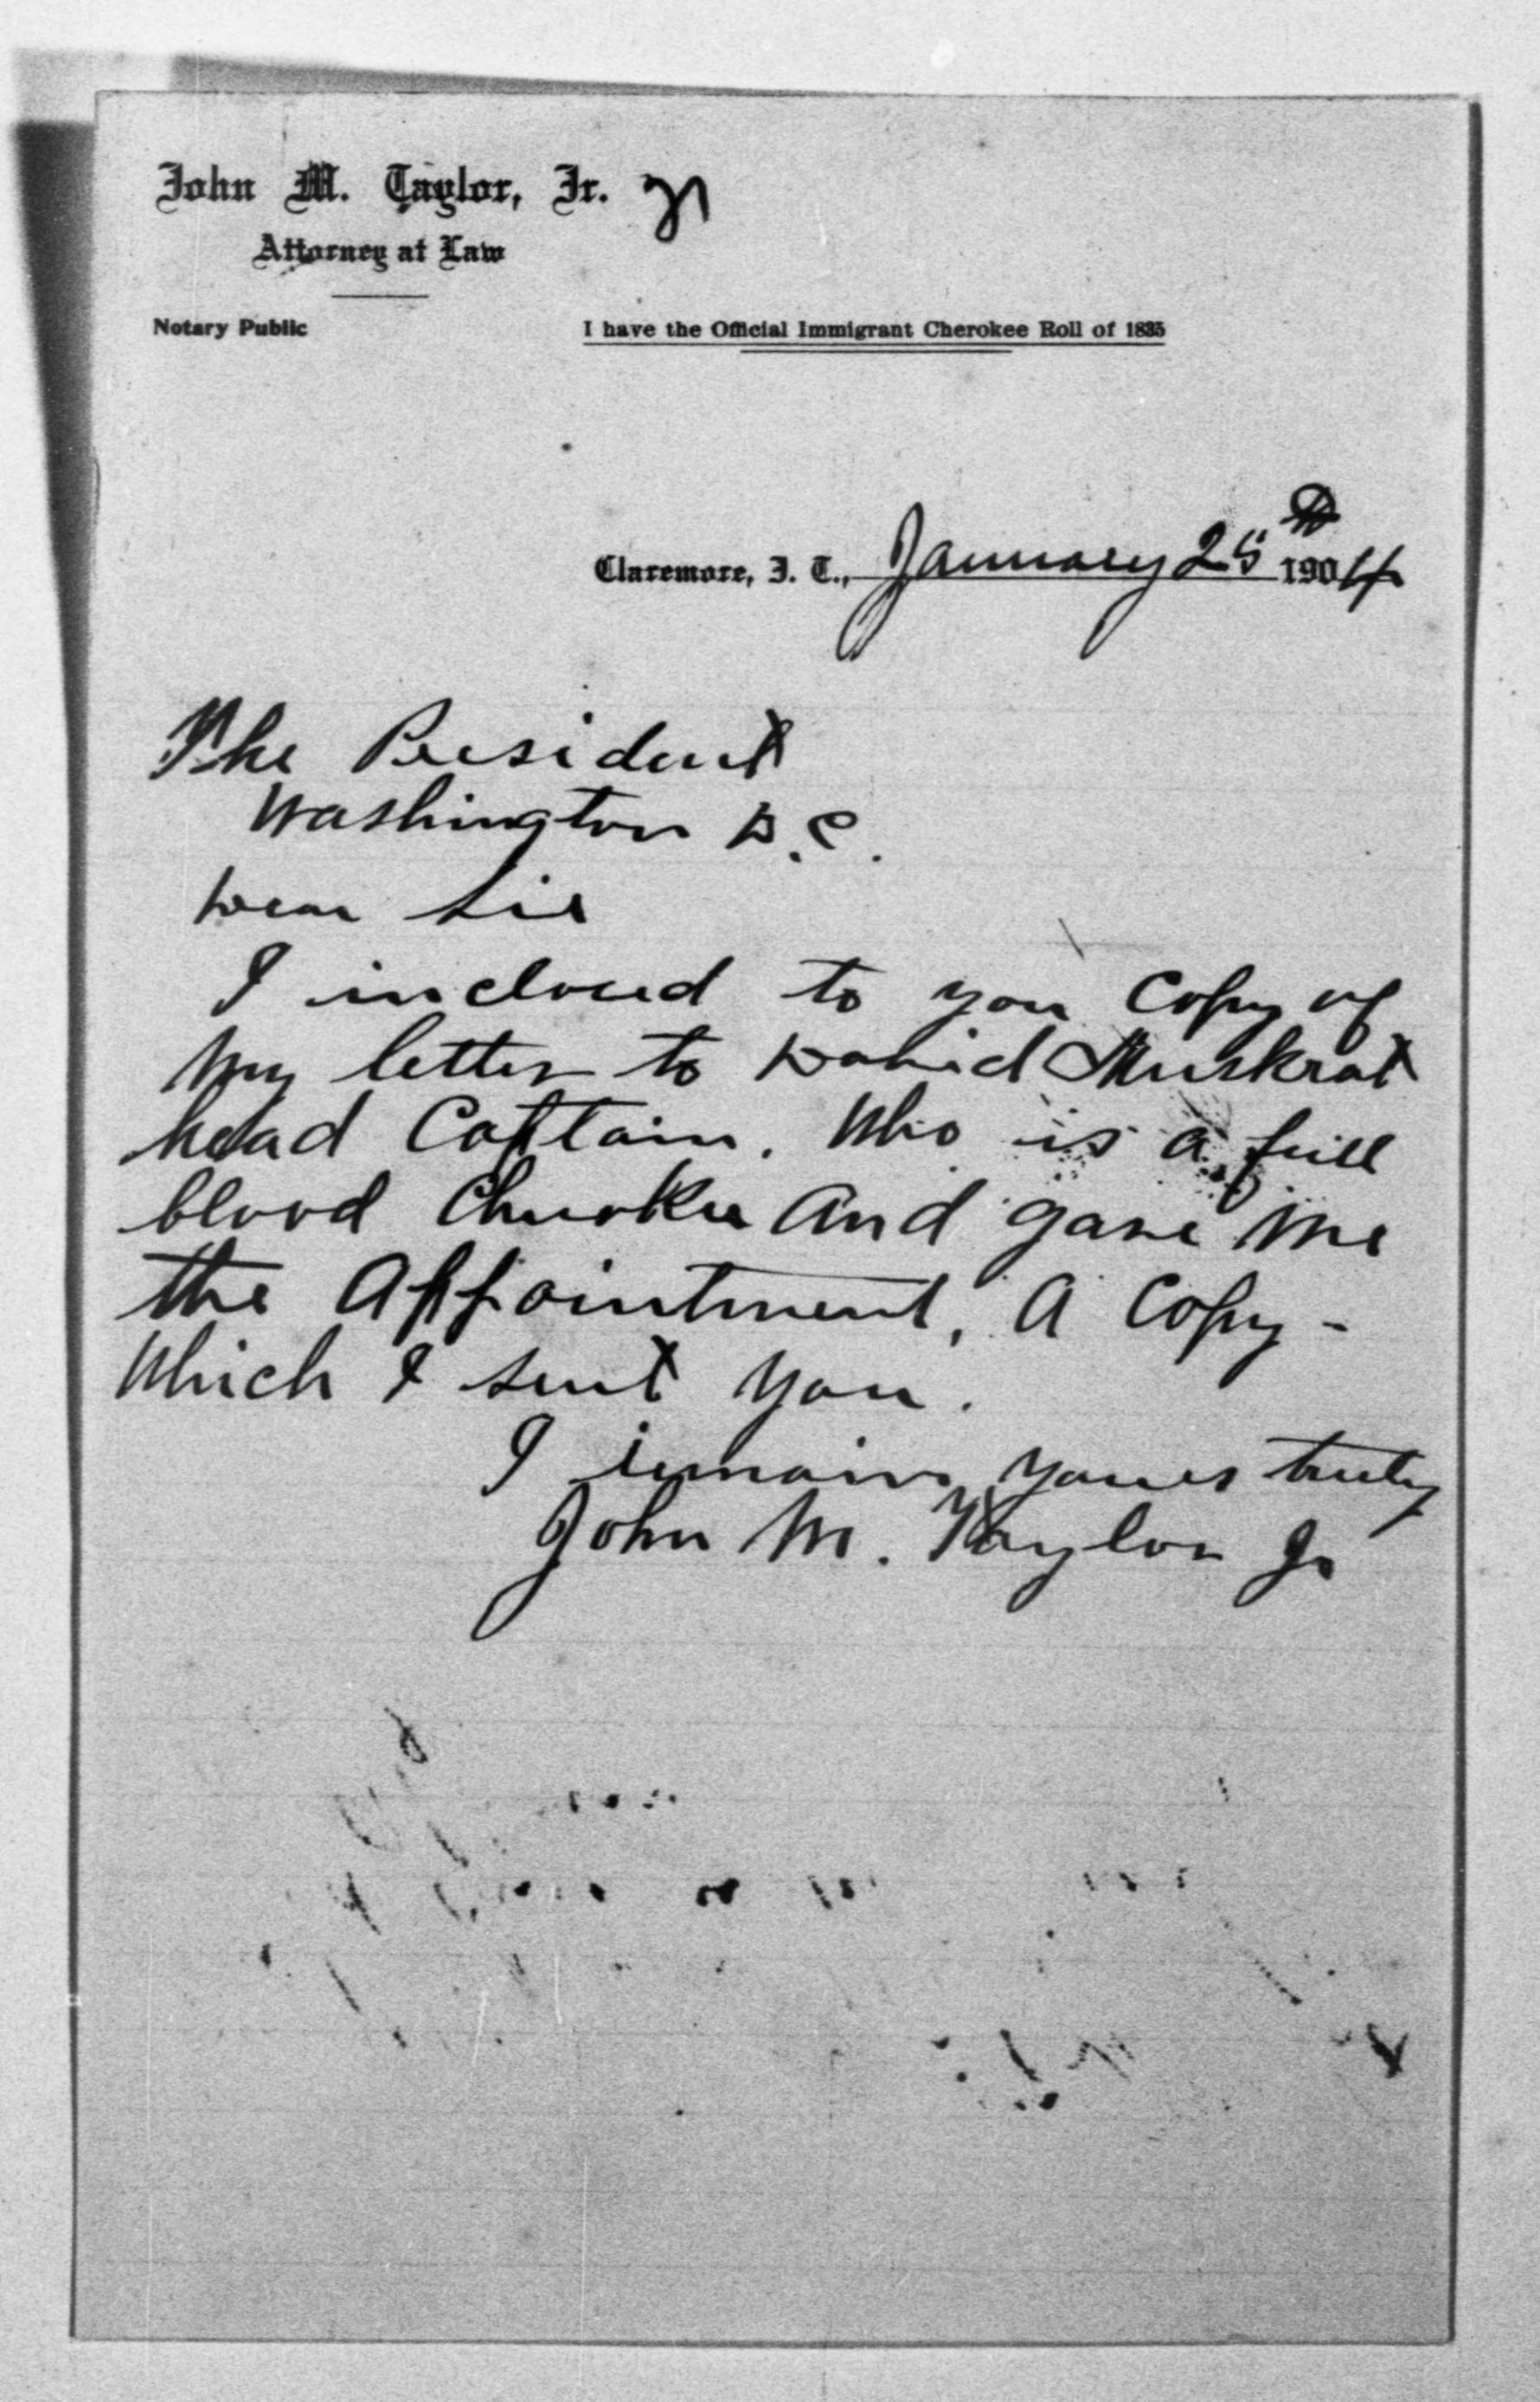 John M. Taylor, Jr.
Attorney at Law
Notary Public
I have the Official Immigrant Cherokee Roll of 1835
Claremore, I. T., January 25th 1904
The President
Washington D.C.
Dear Sir
I inclosed to you Copy of
My letter to David Muskrat
head Captain. Who is a full
blood Cherokee And gave Me
the Appointment, A Copy -
Which I sent You.
I remain yours truly
John M. Taylor Jr